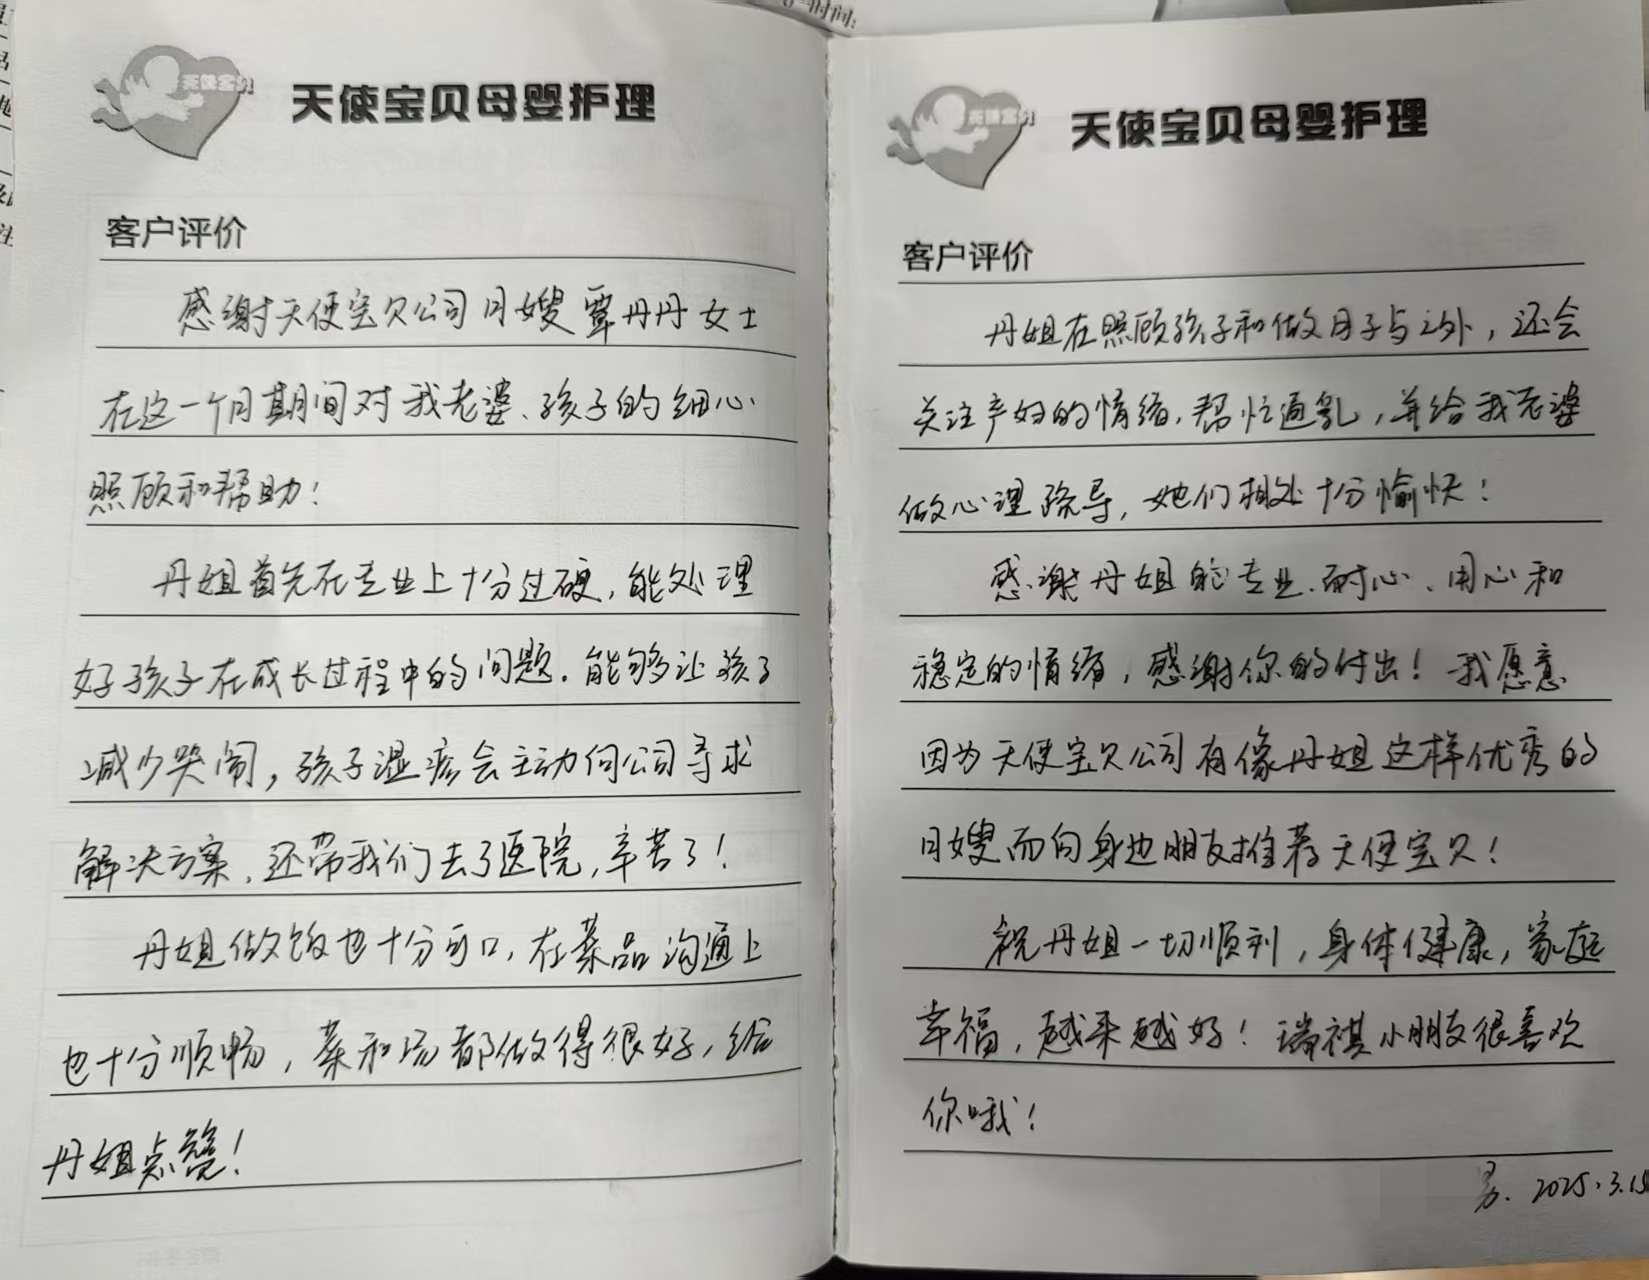 时间：
天使宝贝
天使宝贝母婴护理
客户评价
感谢天使宝贝公司月嫂覃丹丹女士
在这一个月期间对我老婆、孩子的细心
照顾和帮助！
丹姐首先在专业上十分过硬，能处理
好孩子在成长过程中的问题．能够让孩子
减少哭闹，孩子湿疹会主动向公司寻求
解决方案，还带我们去了医院，辛苦了！
丹姐做饭也十分可口，在菜品沟通上
也十分顺畅，菜和汤都做得很好，给
丹姐点赞！
天使宝贝
天使宝贝母婴护理
客户评价
丹姐在照顾孩子和做月子与之外，还会
关注产妇的情绪，帮忙通乳，并给我老婆
做心理疏导，她们相处十分愉快！
感谢丹姐的专业、耐心、用心和
稳定的情绪，感谢你的付出！我愿意
因为天使宝贝公司有像丹姐这样优秀的
月嫂而向身边朋友推荐天使宝贝！
祝丹姐一切顺利，身体健康，家庭
幸福，越来越好！瑞祺小朋友很喜欢
你哦！
2025.3.15